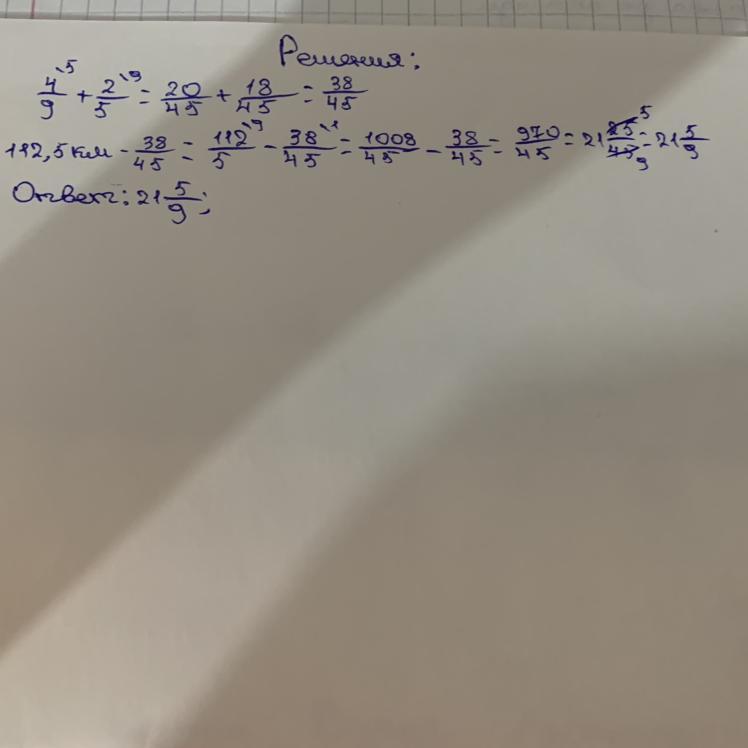 Решения:
4/9 \5 + 2/5 \9 = 20/45 + 18/45 = 38/45
112,5 км - 38/45 = 112/5 \9 - 38/45 \1 = 1008/45 - 38/45 = 970/45 = 21 25/45 5 9 = 21 5/9
Ответ: 21 5/9;